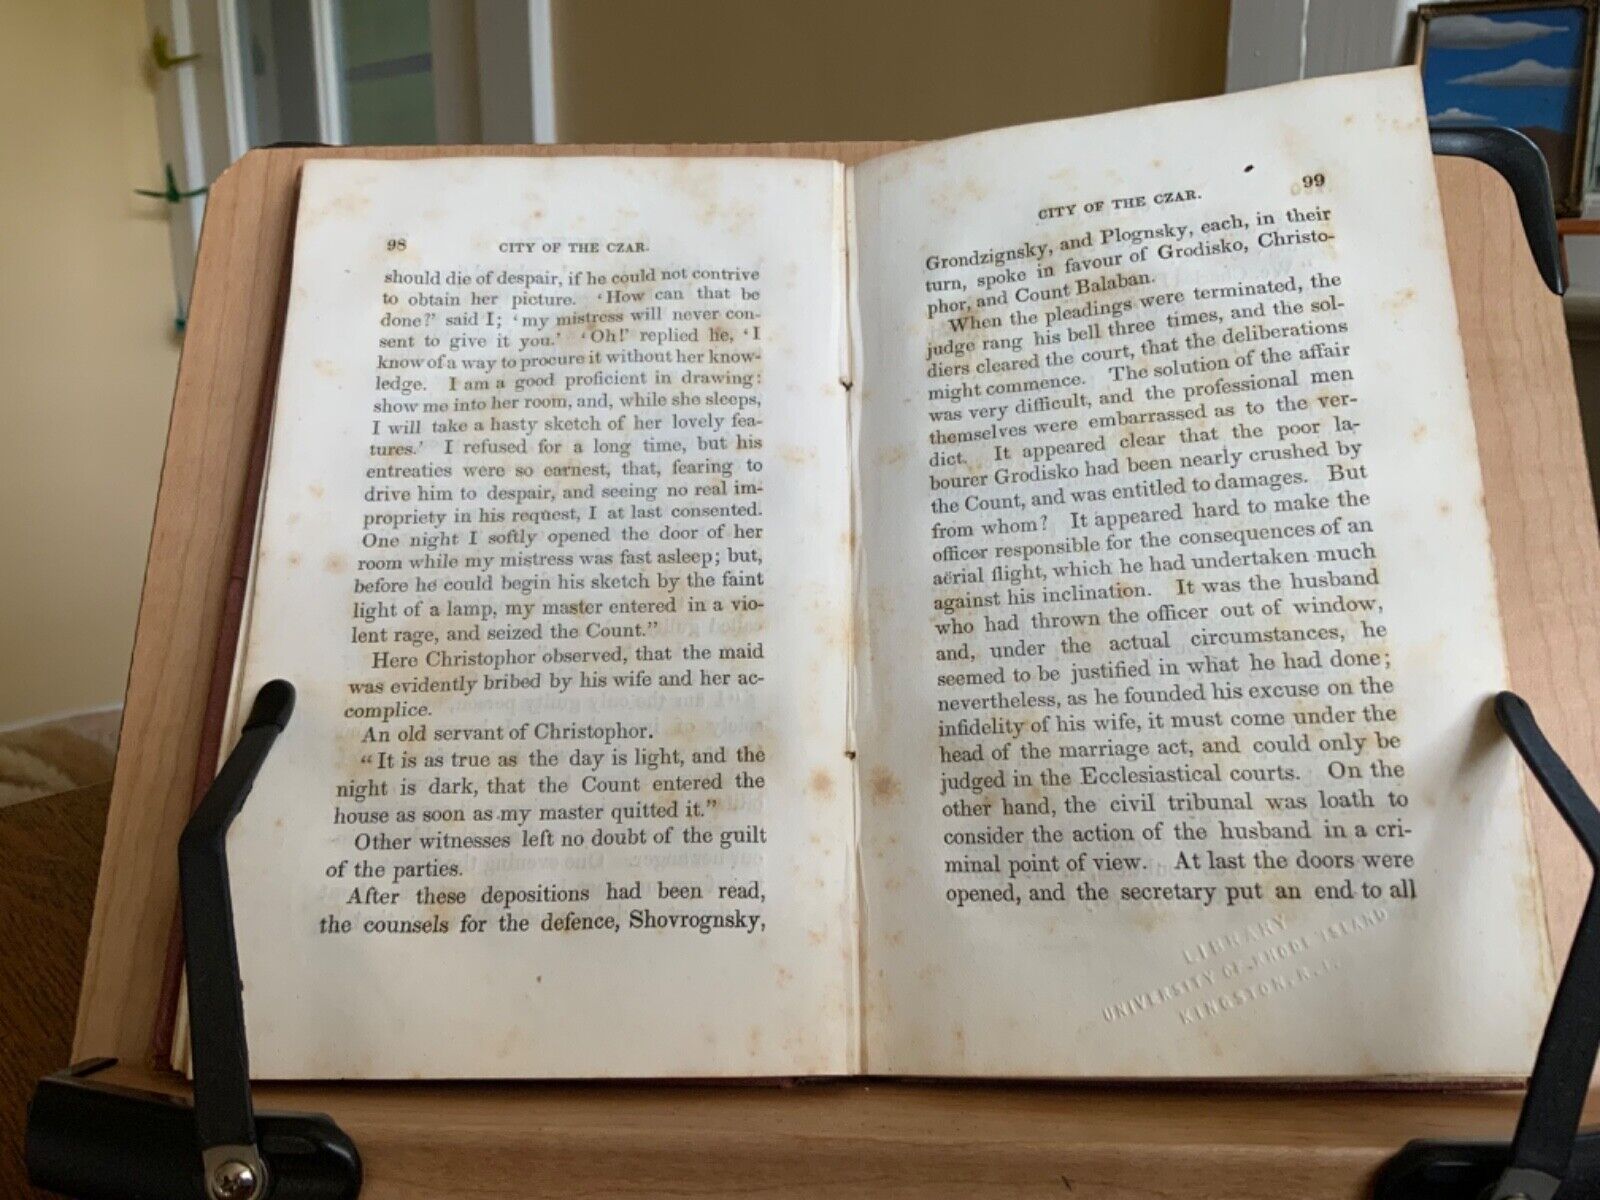 98
CITY OF THE CZAR.
should die of despair, if he could not contrive
to obtain her picture. 'How can that be
done?' said I; 'my mistress will never con-
sent to give it you.' 'Oh!' replied he, 'I
know of a way to procure it without her know-
ledge. I am a good proficient in drawing:
show me into her room, and, while she sleeps,
I will take a hasty sketch of her lovely fea-
tures.' I refused for a long time, but his
entreaties were so earnest, that, fearing to
drive him to despair, and seeing no real im-
propriety in his request, I at last consented.
One night I softly opened the door of her
room while my mistress was fast asleep; but,
before he could begin his sketch by the faint
light of a lamp, my master entered in a vio-
lent rage, and seized the Count."
Here Christophor observed, that the maid
was evidently bribed by his wife and her ac-
complice.
An old servant of Christophor.
"It is as true as the day is light, and the
night is dark, that the Count entered the
house as soon as my master quitted it."
Other witnesses left no doubt of the guilt
of the parties.
After these depositions had been read,
the counsels for the defence, Shovrognsky,
CITY OF THE CZAR.
99
Grondzignsky, and Plognsky, each, in their
turn, spoke in favour of Grodisko, Christo-
phor, and Count Balaban.
When the pleadings were terminated, the
judge rang his bell three times, and the sol-
diers cleared the court, that the deliberations
might commence. The solution of the affair
was very difficult, and the professional men
themselves were embarrassed as to the ver-
dict. It appeared clear that the poor la-
bourer Grodisko had been nearly crushed by
the Count, and was entitled to damages. But
from whom? It appeared hard to make the
officer responsible for the consequences of an
aërial flight, which he had undertaken much
against his inclination. It was the husband
who had thrown the officer out of window,
and, under the actual circumstances, he
seemed to be justified in what he had done;
nevertheless, as he founded his excuse on the
infidelity of his wife, it must come under the
head of the marriage act, and could only be
judged in the Ecclesiastical courts. On the
other hand, the civil tribunal was loath to
consider the action of the husband in a cri-
minal point of view. At last the doors were
opened, and the secretary put an end to all
LIBRARY
UNIVERSITY OF RHODE ISLAND
KINGSTON, R. I.